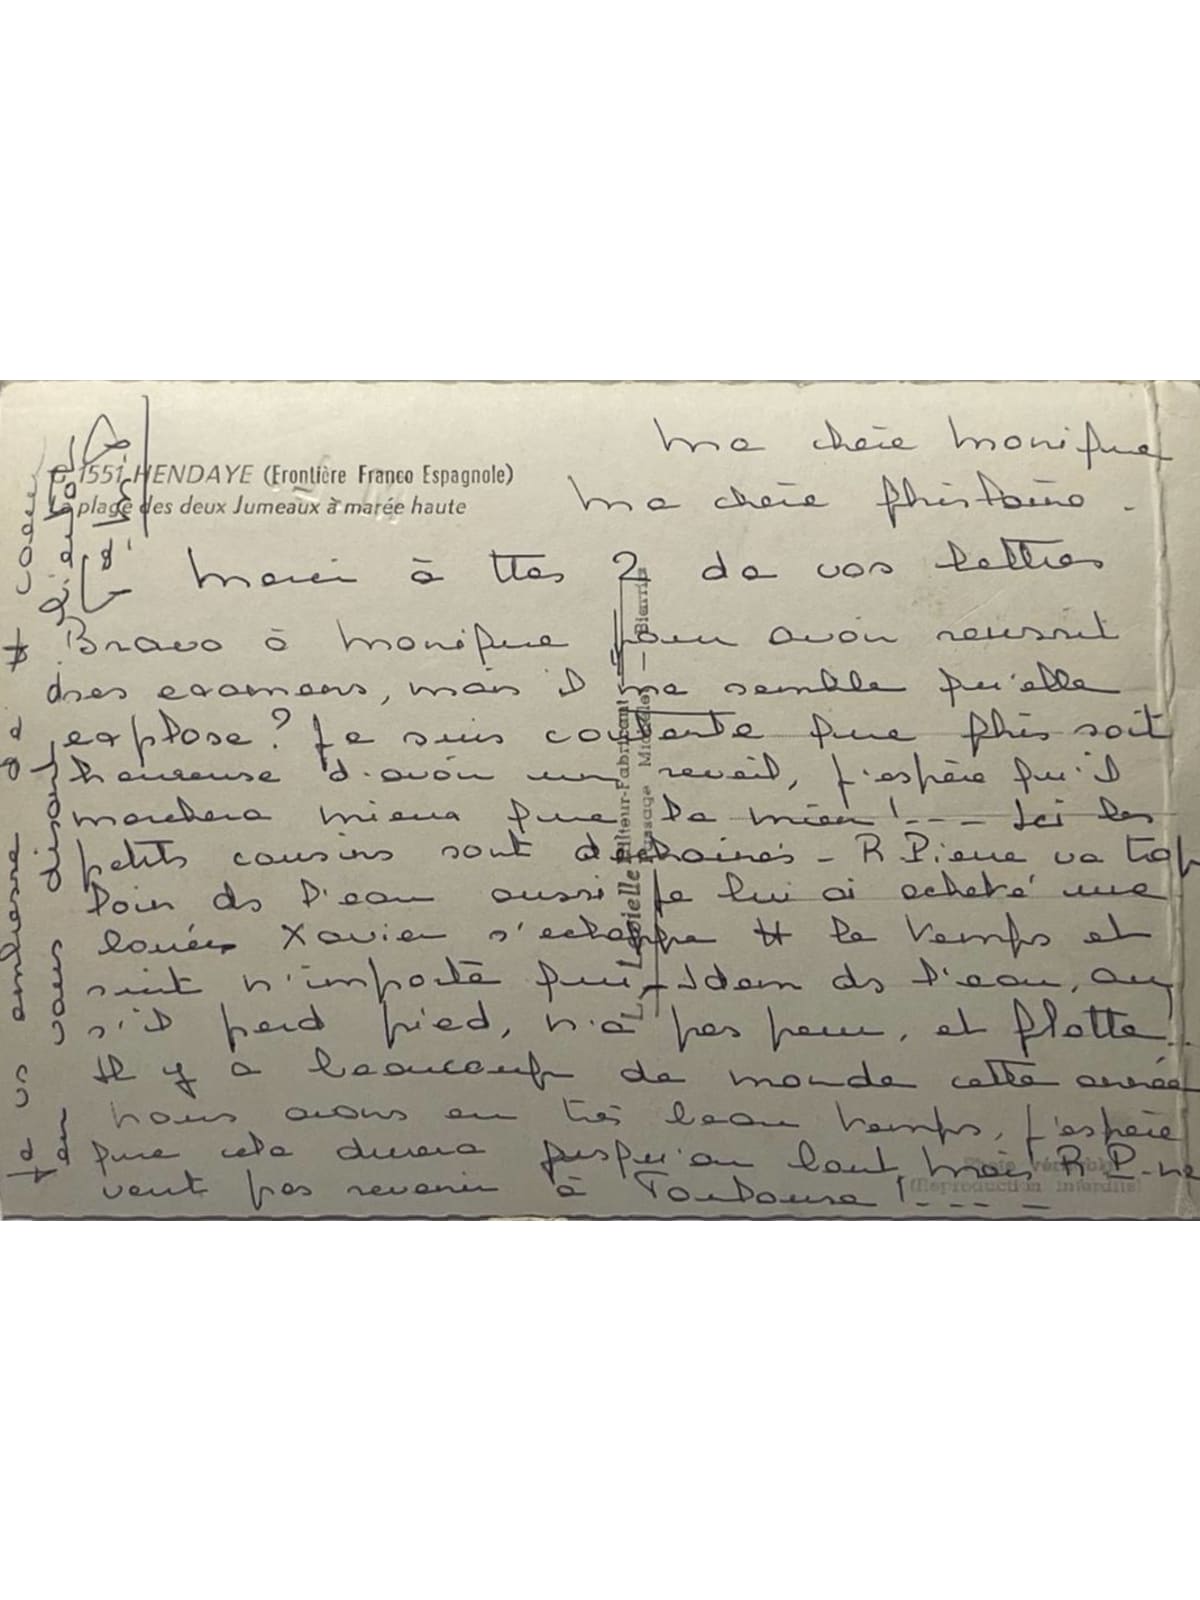 1551 HENDAYE (Frontière Franco Espagnole)
La plage des deux Jumeaux à marée haute
Ma chère Monique
Ma chère
Merci à ttes 2 de vos lettres
Bravo à Monique pour avoir reussit
ses examens, mais il me semble qu'elle
explose? Je suis contente que soit
heureuse d'avoir un reveil, j'espère qu'il
marchera mieux que le mien! --- Ici les
petits cousins sont dechainés - R. Pierre va trop
loin ds l'eau aussi je lui ai acheté une
bouée, Xavier s'echappe tt le temps et
suit n'importe qui - Idem ds l'eau, ou
s'il perd pied, n'a pas peur, et flotte..
Il y a beaucoup de monde cette année
nous avons eu très beau temps, j'espère
que cela durera jusqu'au bout, mais R P. ne
veut pas revenir à Toulouse! ----
Je vs embrasse de tt coeur
en vous disant à bientôt
L. Labielle Editeur-Fabricant
Passage Michelet - Biarritz
Photo véritable
(Reproduction interdite)